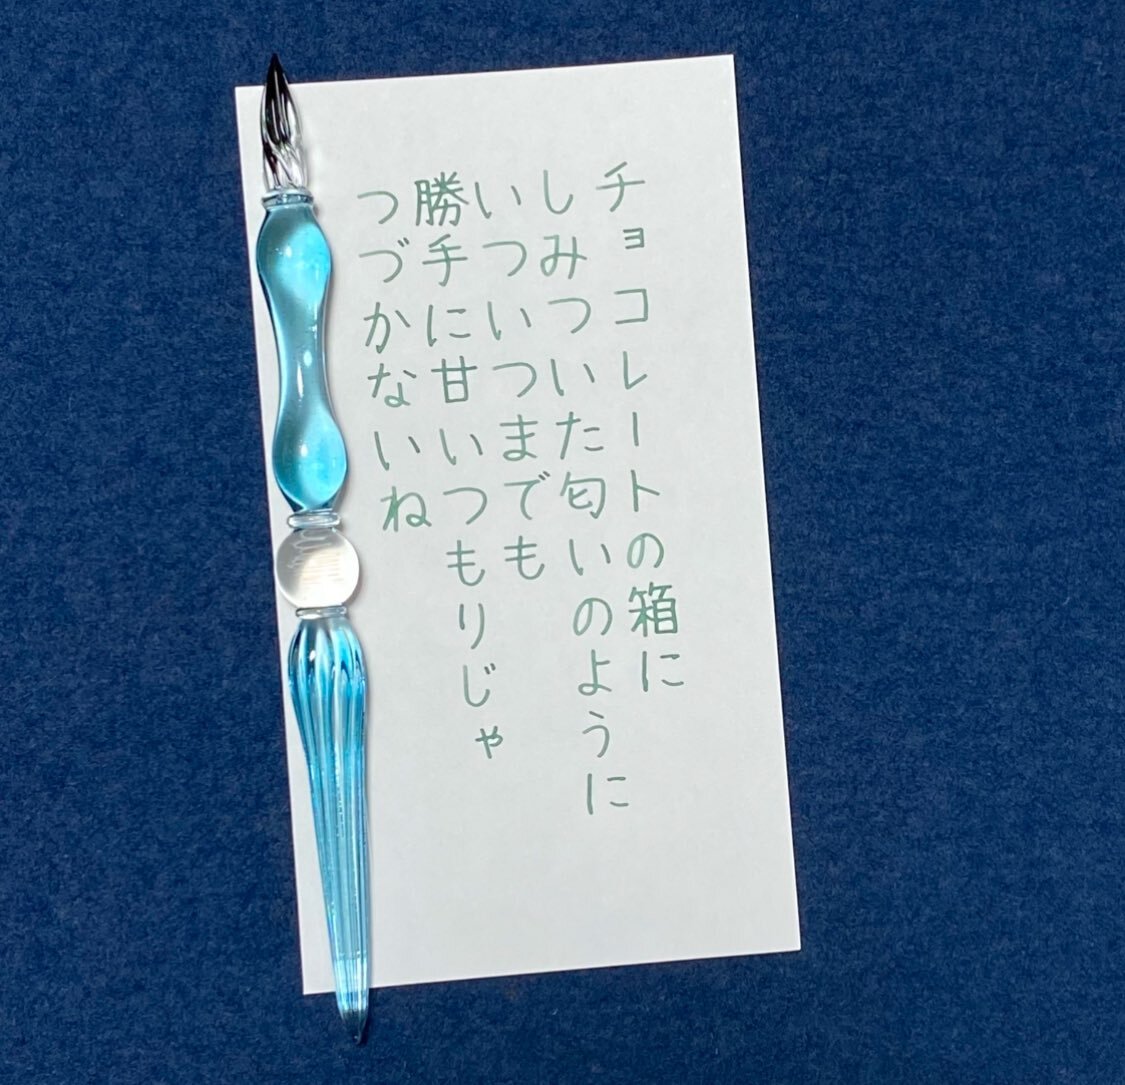 チョコレートの箱に
しみついた匂いのように
いついつまでも
勝手に甘いつもりじゃ
つづかないね